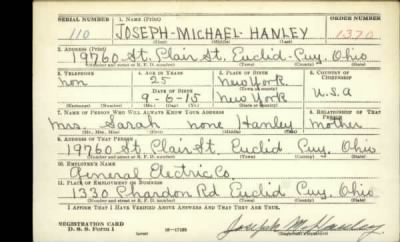 SERIAL NUMBER 1. NAME (Print) ORDER NUMBER
110 JOSEPH-MICHAEL-HANLEY 1370
(First) (Middle) (Last)
2. ADDRESS (Print)
19760 St. Clair St. Euclid-Cuy. Ohio
(Number and street or R. F. D. number) (Town) (County) (State)
3. TELEPHONE 4. AGE IN YEARS 5. PLACE OF BIRTH 6. COUNTRY OF CITIZENSHIP
non 25 New York U.S.A
DATE OF BIRTH (Town or county)
9-6-15 New York
(Mo.) (Day) (Yr.) (State or country)
7. NAME OF PERSON WHO WILL ALWAYS KNOW YOUR ADDRESS 8. RELATIONSHIP OF THAT PERSON
Mrs. Sarah none Hanley mother
(Mr., Mrs., Miss) (First) (Middle) (Last)
9. ADDRESS OF THAT PERSON
19760 St. Clair St. Euclid Cuy. Ohio
(Number and street or R. F. D. number) (Town) (County) (State)
10. EMPLOYER'S NAME
General Electric Co.
11. PLACE OF EMPLOYMENT OR BUSINESS
1330 Chardon Rd Euclid Cuy. Ohio
(Number and street or R. F. D. number) (Town) (County) (State)
I AFFIRM THAT I HAVE VERIFIED ABOVE ANSWERS AND THAT THEY ARE TRUE.
REGISTRATION CARD
D. S. S. Form 1 (over) 16-17105 Joseph M. Hanley